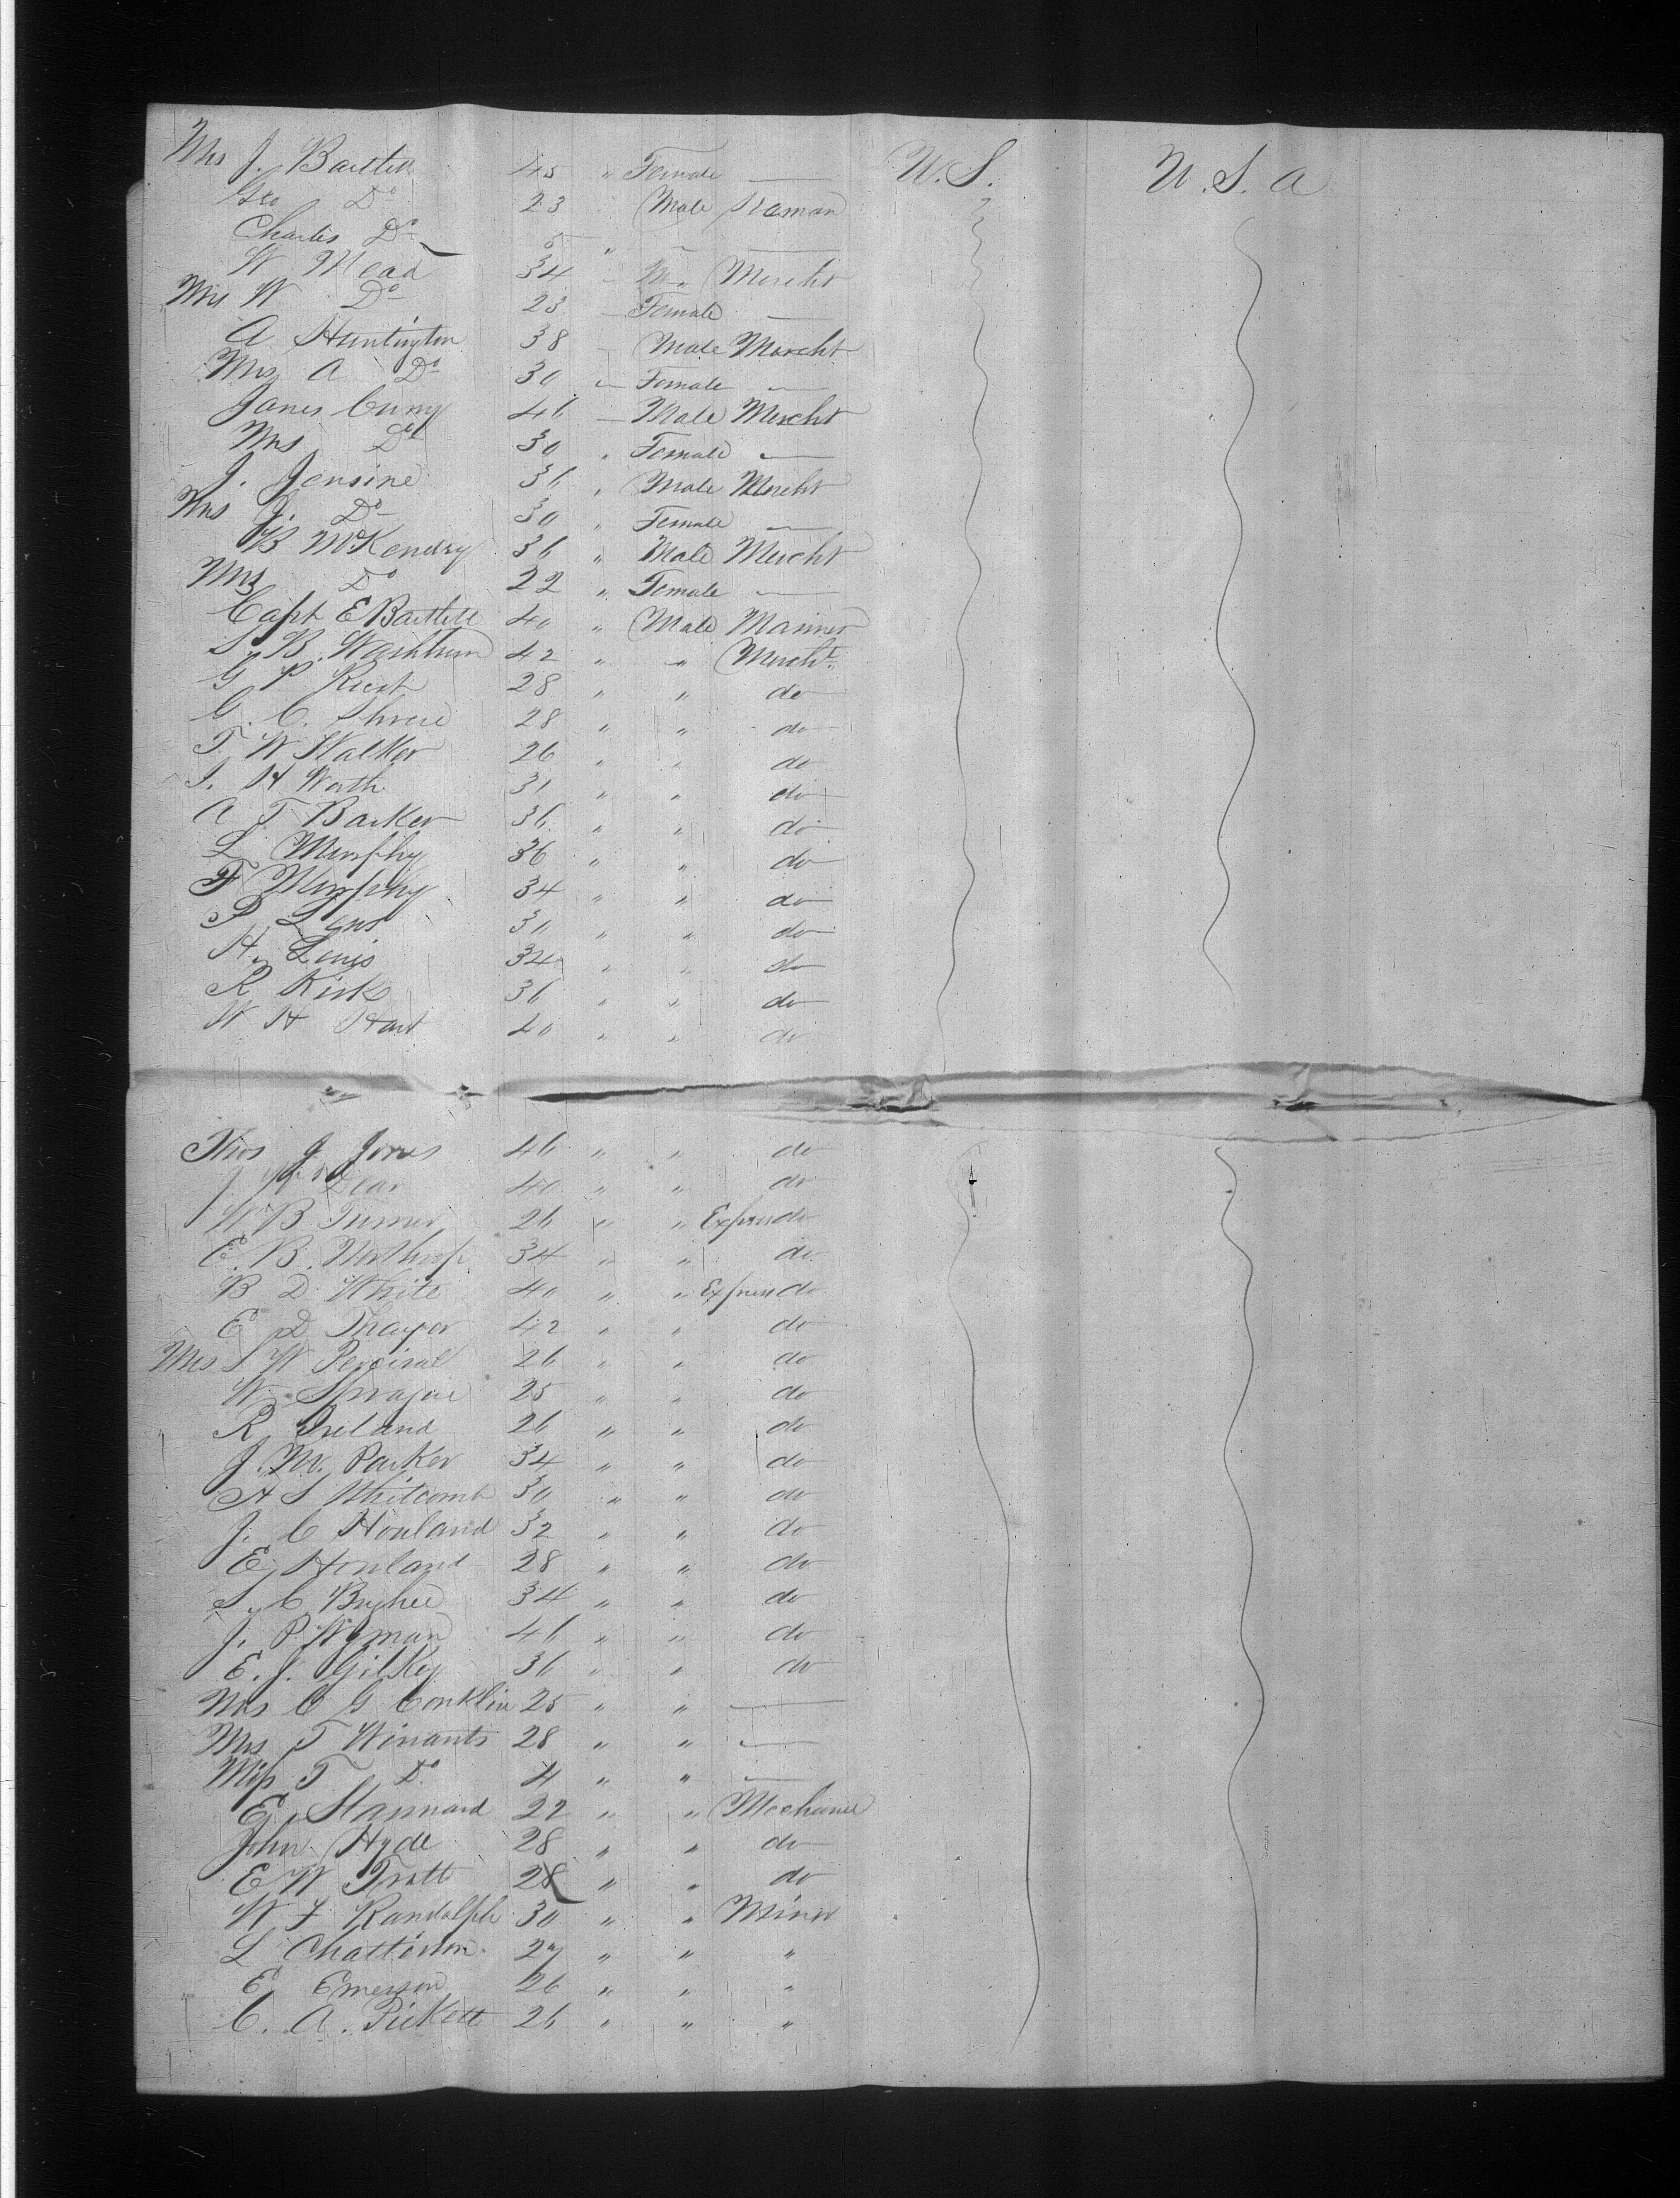 Mrs J. Bartlett 45 " Female — U.S. U.S.A
Geo Do 23 Male Seaman
Charles Do 5 " " —
W Mead 34 " Mercht
Mrs W Do 23 — Female —
A Huntington 38 — Male Mercht
Mrs A Do 30 " Female —
James Curry 46 — Male Mercht
Mrs Do 30 " Female —
J. 36 " Male Mercht
Mrs J. Do 30 " Female —
B McKendry 36 " Male Mercht
Mrs Do 22 " Female —
Capt E Bartlett 40 " Male Mariner
S. B. Washburn 42 " " Mercht
G P 28 " " do
G. C. Shreve 28 " " do
T. W Walker 26 " " do
J. H Worth 31 " " do
A T Barker 36 " " do
L Murphy 36 " " do
F Murphy 34 " " do
P 30 " " do
H. Lewis 34 " " do
R Kirk 36 " " do
W H Hart 40 " " do
Thos J Jones 46 " " do
J W Dear 40 " " do
W. B Turner 26 " " Express do
E. B. Northrop 34 " " do
B D White 40 " " Express do
E D Thayer 42 " " do
Mrs S W Percival 26 " " do
W. Sprague 25 " " do
R Ireland 26 " " do
J. M. Parker 34 " " do
A S Whitcomb 30 " " do
J. C Houland 32 " " do
E Houland 28 " " do
S. C 34 " " do
J. P. Wyman 46 " " do
E. J. Gilkey 36 " " do
Mrs C G Conklin 25 " " —
Mrs T Winants 28 " " —
Miss T Do 4 " " —
E. Stannard 22 " " Mechanic
John Hyde 28 " " do
E W Tratt 28 " " do
W F Randolph 30 " " Miner
L Chatterton 27 " " "
E Emerson 26 " " "
C. A. Pickett 26 " " "